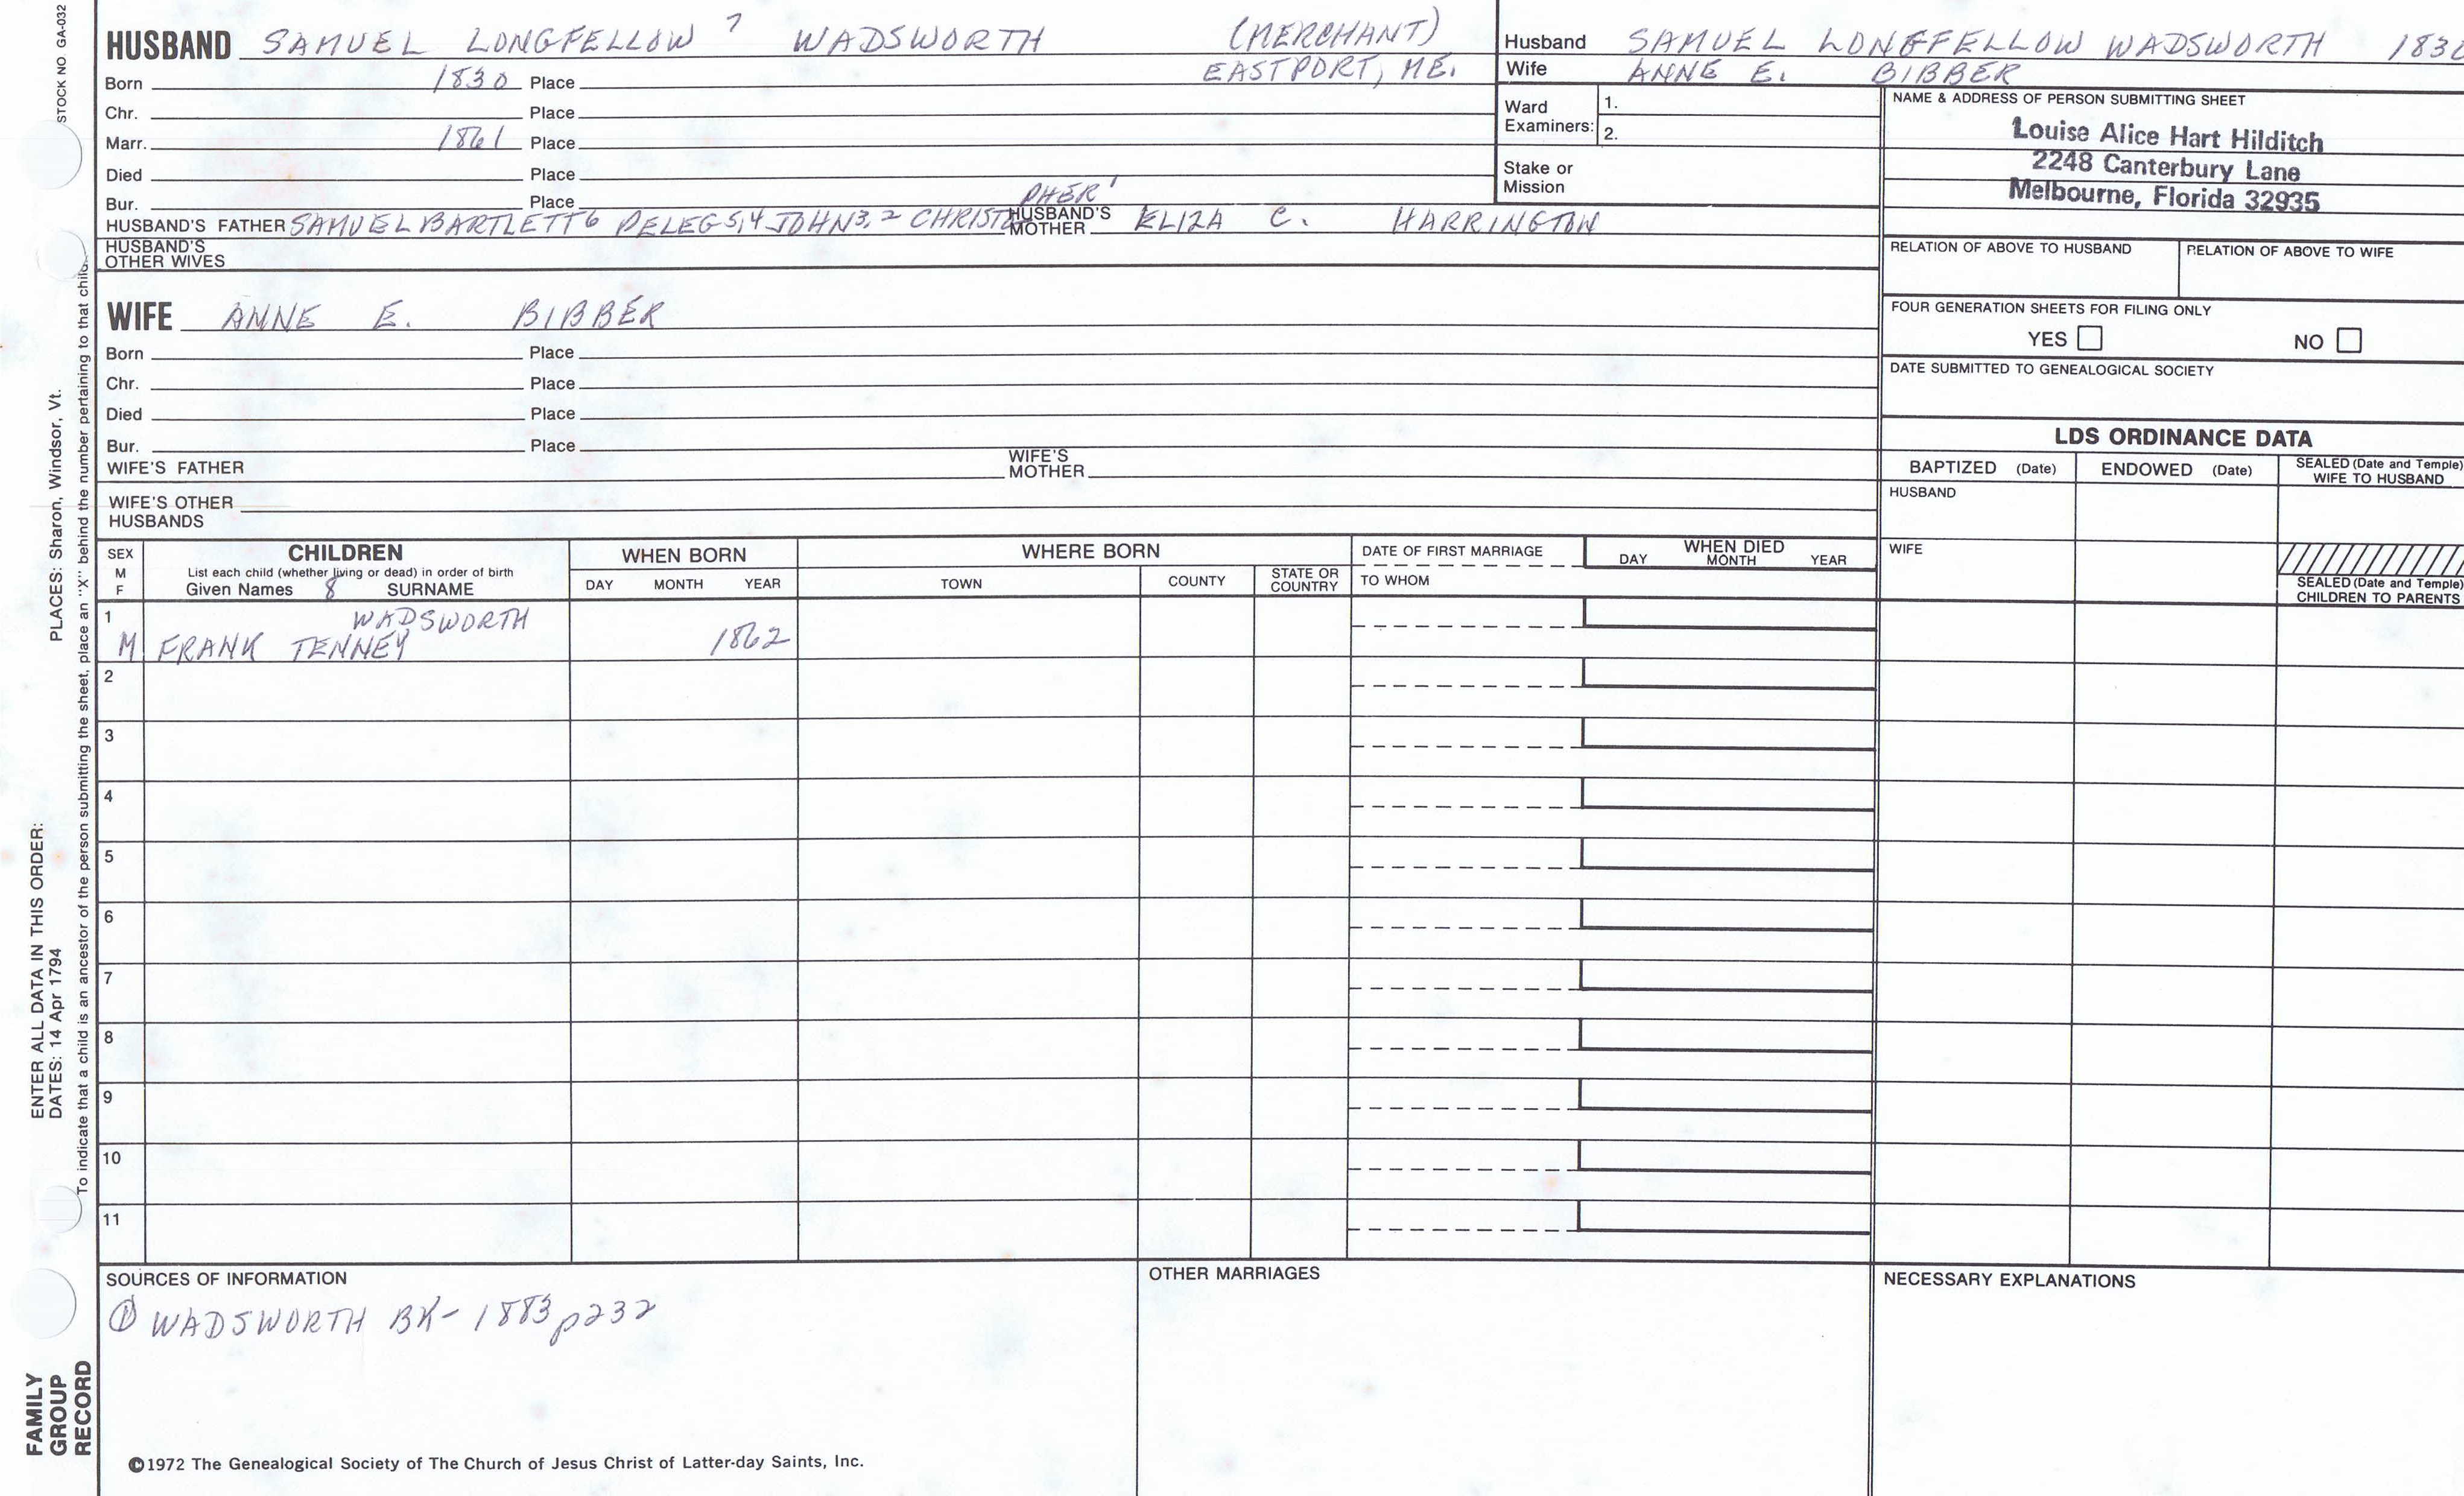 STOCK NO. GA-032
HUSBAND SAMUEL LONGFELLOW 7 WADSWORTH (MERCHANT)
Born 1830 Place EASTPORT, ME.
Chr. Place
Marr. 1861 Place
Died Place
Bur. Place
HUSBAND'S FATHER SAMUEL BARTLETT 6 PELEG 5,4 JOHN 3,2 CHRISTOPHER 1 HUSBAND'S MOTHER ELIZA C. HARRINGTON
HUSBAND'S OTHER WIVES
WIFE ANNE E. BIBBER
Born Place
Chr. Place
Died Place
Bur. Place
WIFE'S FATHER WIFE'S MOTHER
WIFE'S OTHER HUSBANDS
Husband SAMUEL LONGFELLOW WADSWORTH 1830
Wife ANNE E. BIBBER
Ward Examiners: 1.
2.
Stake or Mission
NAME & ADDRESS OF PERSON SUBMITTING SHEET
Louise Alice Hart Hilditch
2248 Canterbury Lane
Melbourne, Florida 32935
RELATION OF ABOVE TO HUSBAND RELATION OF ABOVE TO WIFE
FOUR GENERATION SHEETS FOR FILING ONLY
YES NO
DATE SUBMITTED TO GENEALOGICAL SOCIETY
LDS ORDINANCE DATA
BAPTIZED (Date) ENDOWED (Date) SEALED (Date and Temple) WIFE TO HUSBAND
HUSBAND
WIFE
SEALED (Date and Temple) CHILDREN TO PARENTS
SEX M F
CHILDREN
List each child (whether living or dead) in order of birth
Given Names 8 SURNAME
WHEN BORN
DAY MONTH YEAR
WHERE BORN
TOWN COUNTY STATE OR COUNTRY
DATE OF FIRST MARRIAGE
TO WHOM
WHEN DIED
DAY MONTH YEAR
1 WADSWORTH
M FRANK TENNEY 1862
2
3
4
5
6
7
8
9
10
11
SOURCES OF INFORMATION
① WADSWORTH BK- 1883 p232
OTHER MARRIAGES
NECESSARY EXPLANATIONS
©1972 The Genealogical Society of The Church of Jesus Christ of Latter-day Saints, Inc.
FAMILY
GROUP
RECORD
ENTER ALL DATA IN THIS ORDER:
DATES: 14 Apr 1794 PLACES: Sharon, Windsor, Vt.
To indicate that a child is an ancestor of the person submitting the sheet, place an "X" behind the number pertaining to that child.